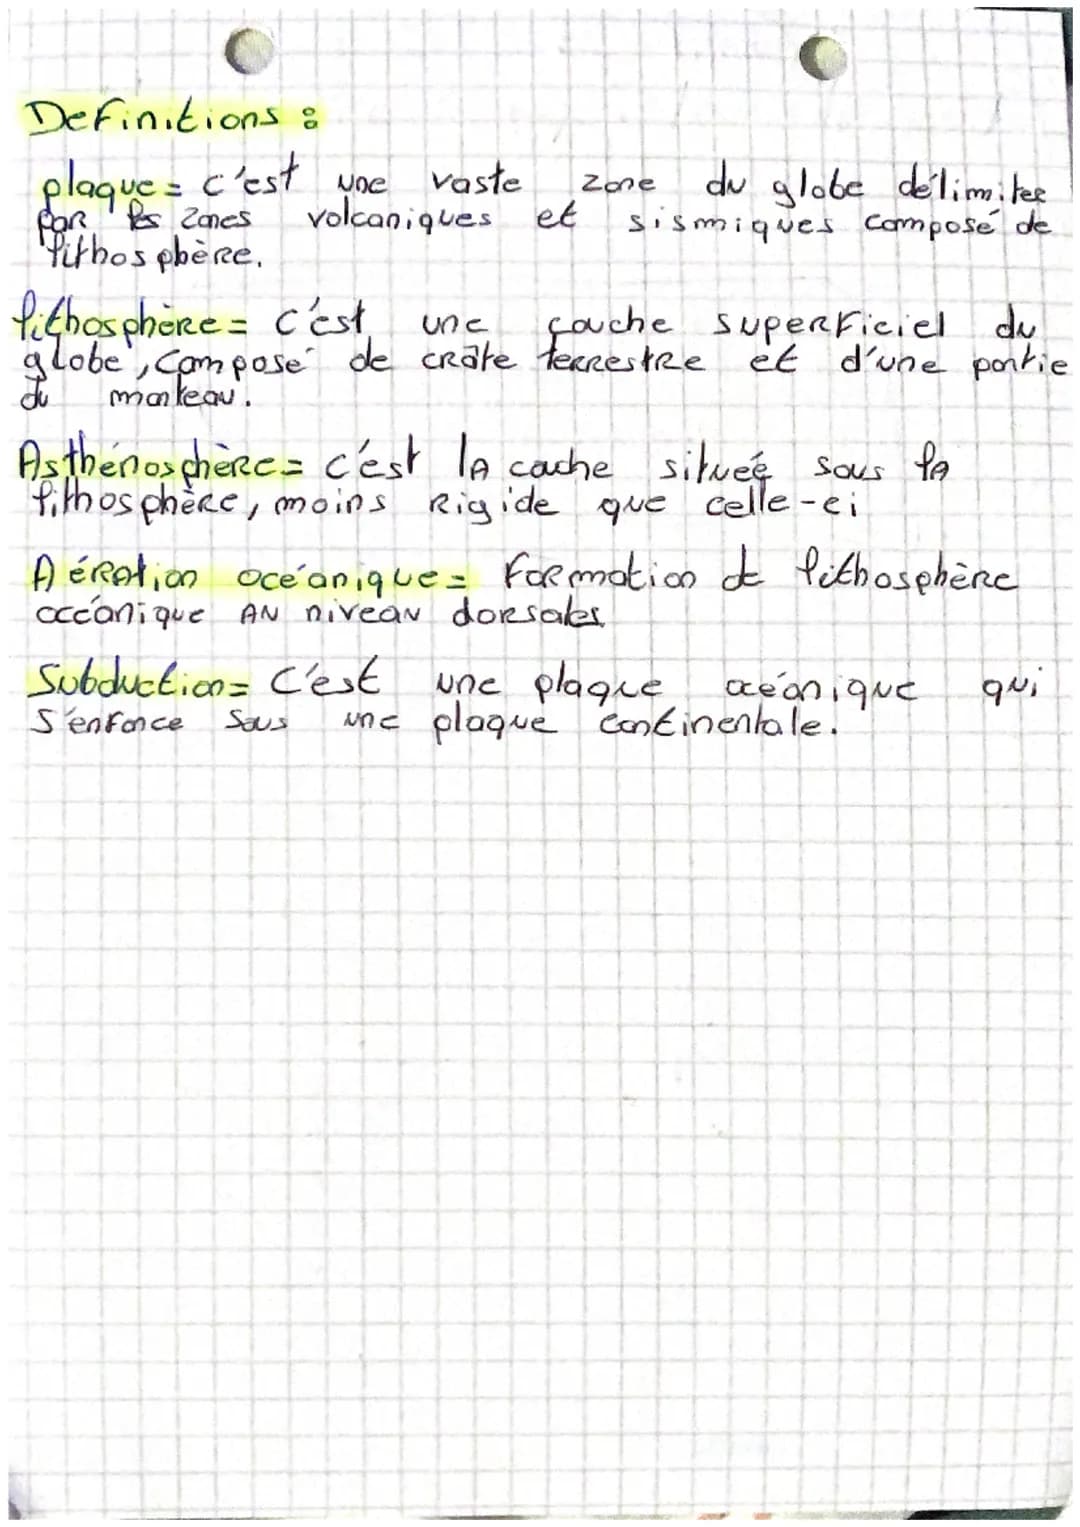 Definitions :
plaque = c'est une vaste zone du globe délimitee
par les zones volcaniques et sismiques composé de
lithosphère.
lithosphère = c'est une couche superficiel du
globe, composé de croate terrestre et d'une partie
du manteau.
Asthénosphère = c'est la cache situeé sous la
lithosphère, moins rigide que celle-ci
Aération océanique = Formation de lithosphère
océanique au niveau dorsales
Subduction = C'est une plaque océanique qui
s'enfonce sous une plaque continentale.